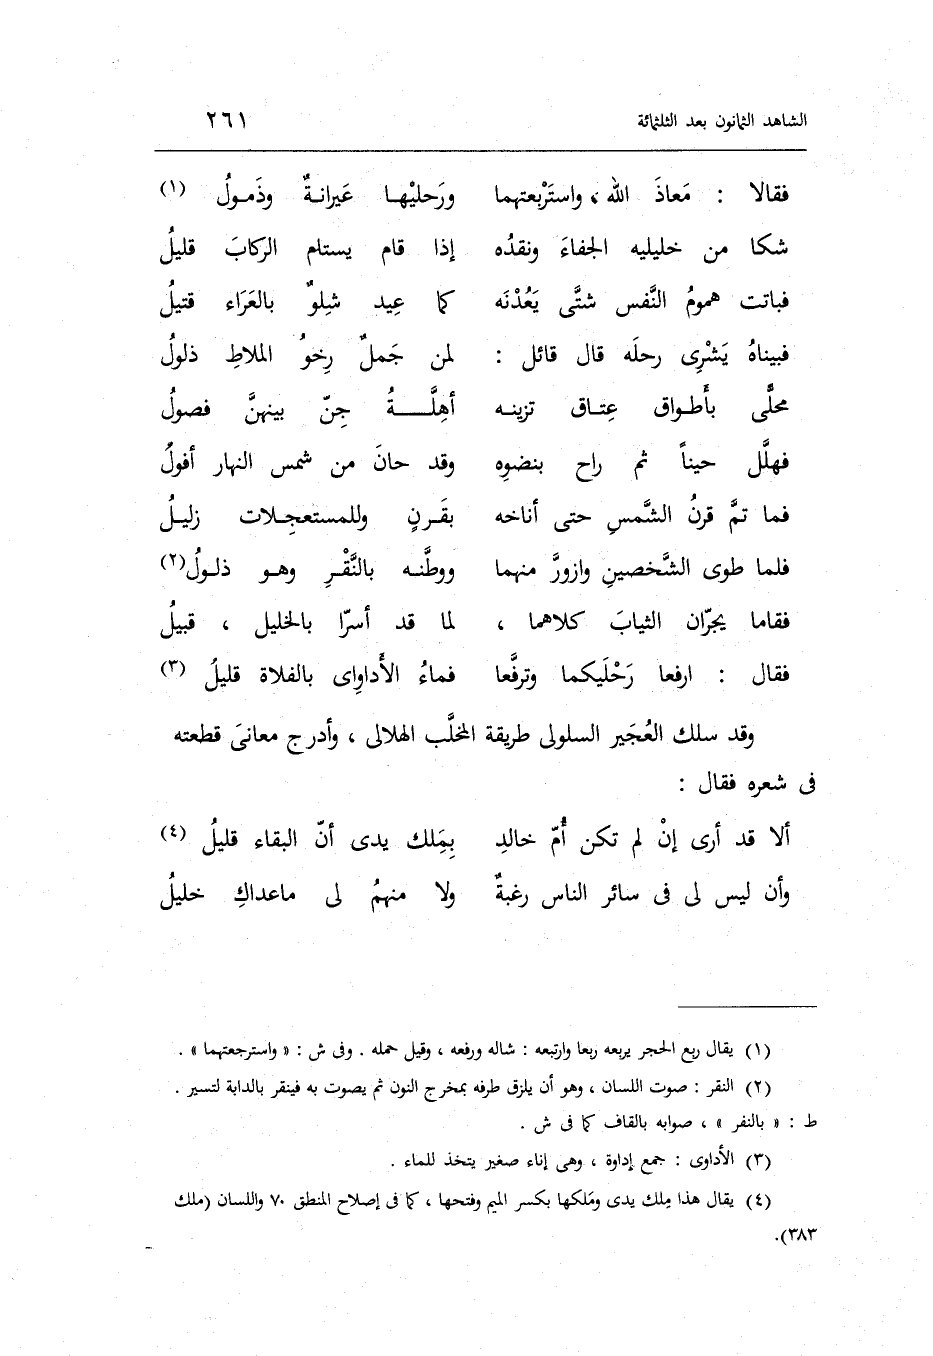 الشاهد الثمانون بعد الثلثمائة ٢٦١
فقالا : مَعاذَ الله ، واستَرْبعتهما ورَحليْهـا عَيرانـةٌ وذَمـولُ (١)
شكا من خليليه الجفاءَ ونقدُه إذا قام يستام الركابَ قليلُ
فباتت همومُ النَّفس شتَّى يَعُدْنَه كما عِيد شلوٌ بالعَرَاء قتيلُ
فبيناهُ يَشْرِى رحلَه قال قائل : لمن جَملٌ رِخوُ الملاطِ ذلولُ
محلَّى بأَطـواق عِتـاق تزينـه أهِلَّــــةُ جِنّ بينهنَّ فصولُ
فهلَّل حيناً ثم راح بنضوِه وقد حانَ من شمس النهار أفولُ
فما تمَّ قرنُ الشَّمسِ حتى أناخه بقَـرنٍ وللمستعجِـلات زليـلُ
فلما طوى الشَّخصينِ وازورَّ منهما ووطَّنـه بالنَّقْـرِ وهـو ذلـولُ(٢)
فقاما يجرّان الثيابَ كلاهما ، لما قد أسرّا بالخليل ، قبيلُ
فقال : ارفعا رَحْلَيكما وترفَّعا فماءُ الأَداوِاى بالفلاة قليلُ (٣)
وقد سلك العُجَير السلولى طريقة المخلَّب الهلالى ، وأدرج معانىَ قطعته
فى شعره فقال :
ألا قد أرى إنْ لم تكن أُمّ خالدِ بِمَِلك يدى أنّ البقاء قليلُ (٤)
وأن ليس لى فى سائر الناس رغبةٌ ولا منهمُ لى ماعداكِ خليلُ
(١) يقال ربع الحجر يربعه ربعا وارتبعه : شاله ورفعه ، وقيل حمله . وفى ش : « واسترجعتهما » .
(٢) النقر : صوت اللسان ، وهو أن يلزق طرفه بمخرج النون ثم يصوت به فينقر بالدابة لتسير .
ط : « بالنفر » ، صوابه بالقاف كما فى ش .
(٣) الأداوى : جمع إداوة ، وهى إناء صغير يتخذ للماء .
(٤) يقال هذا مِلك يدى ومَلكها بكسر الميم وفتحها ، كما فى إصلاح المنطق ٧٠ واللسان (ملك
٣٨٣).